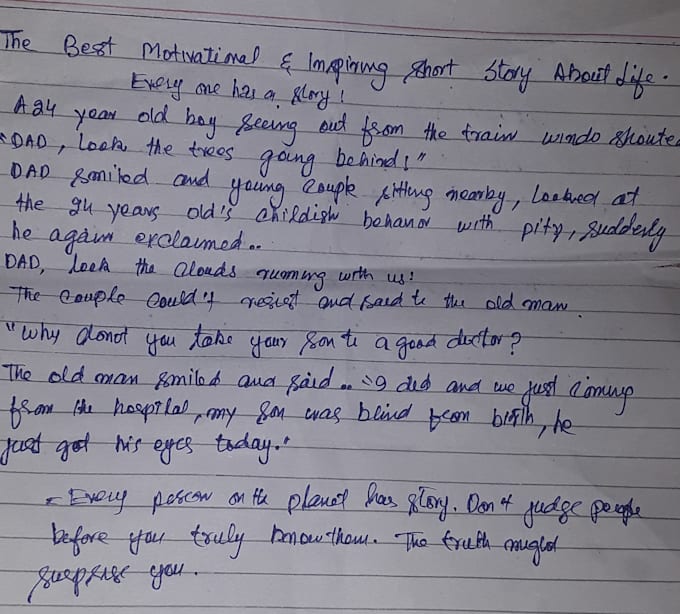 The Best Motivational & Inspiring Short Story About Life.
Every one has a story!
A 24 year old boy seeing out from the train windo shoute
"DAD, Look the trees going behind!"
DAD smiled and young couple sitting nearby, looked at
the 24 years old's childish behavior with pity, suddenly
he again exclaimed..
DAD, look the clouds running with us!
The couple could't resist and said to the old man.
"Why donot you take your son to a good doctor?
The old man smiled and said.. "I did and we just coming
from the hospital, my son was blind from birth, he
just got his eyes today."
Every person on the planet has story. Don't judge people
before you truly know them. The truth might
surprise you.